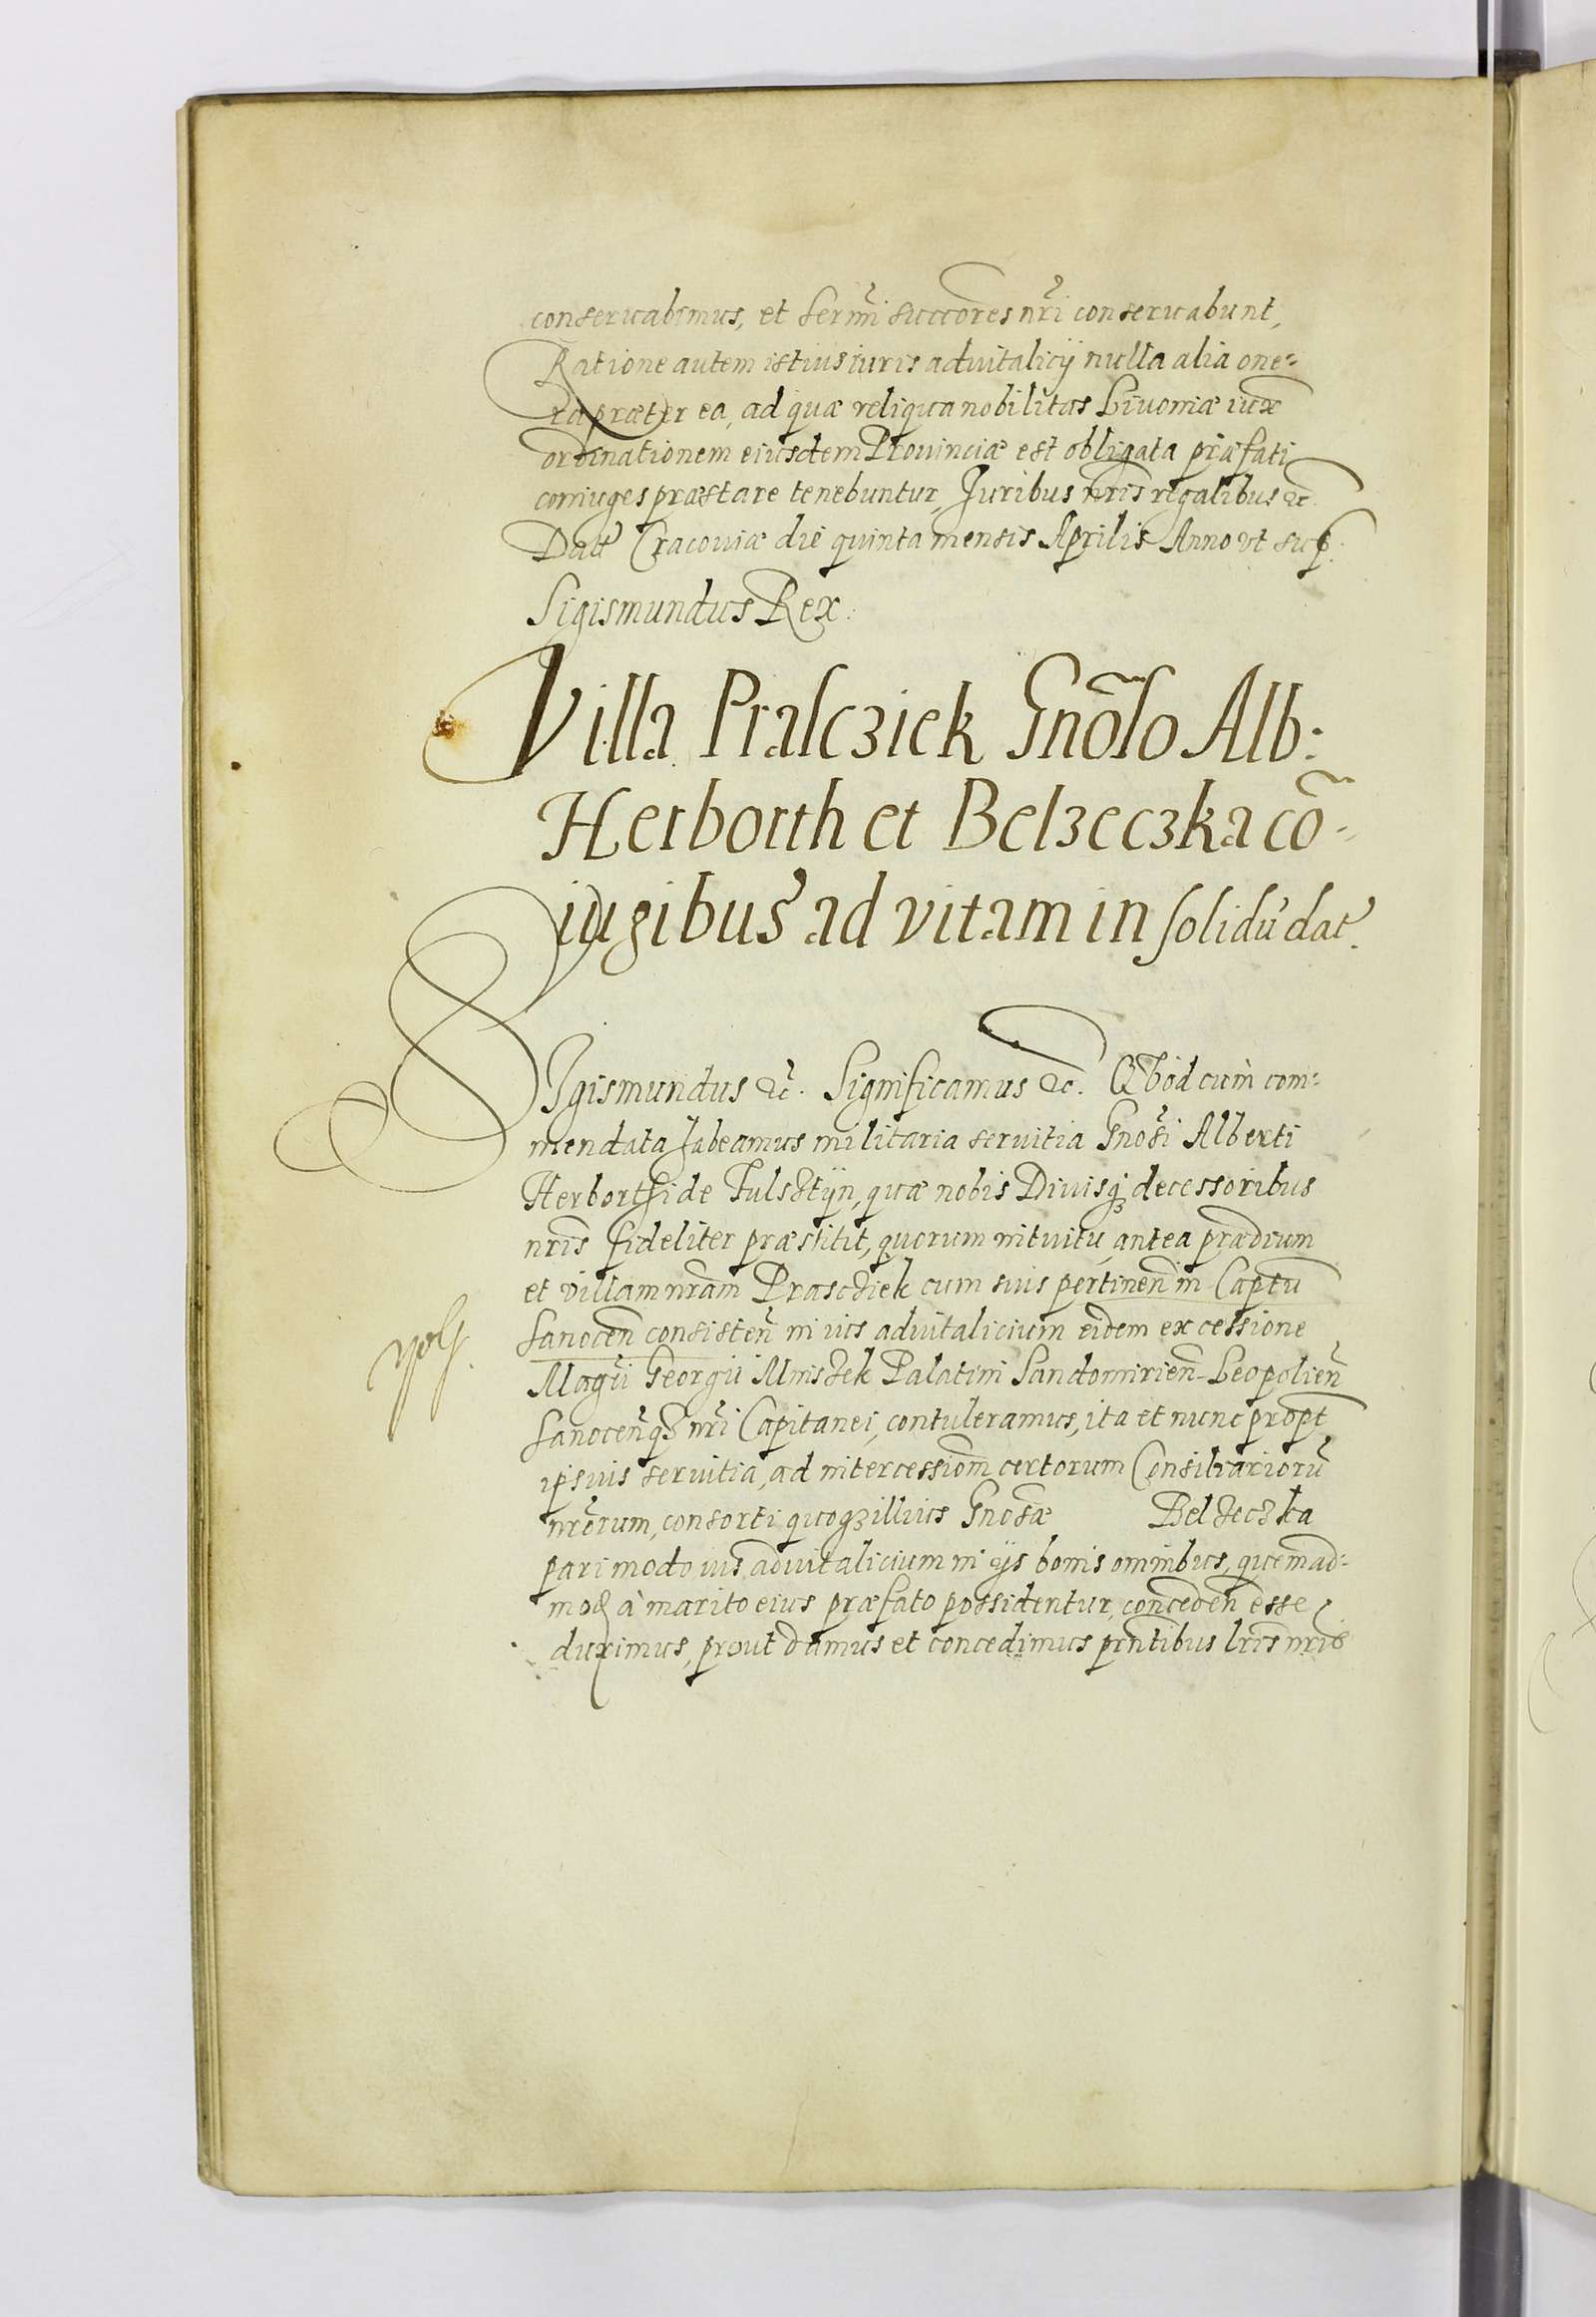 conseruabimus, et Sermi succores nri conseruabunt,
Ratione autem istius iuris aduitalicij nulla alia one=
ra præter ea, ad quæ reliqua nobilitas Liuoniæ iux
ordinationem eiusdem Prouinciæ est obligata præfati
coniuges præstare tenebuntur, Juribus nris regalibus &c
Datt Cracouiæ die quinta mensis Aprilis Anno vt sup.
Sigismundus Rex.
Villa Pralcziek Gnoso Alb:
Herborth et Belzeczka cō=
iugibus ad vitam in solidū dat.
SIgismundus &c. Significamus &c. Quod cum com=
mendata habeamus militaria seruitia Gnosi Alberti
Herborth de Fulsztijn, quæ nobis Diuisq decessoribus
nris fideliter præstitit, quorum intuitu antea prædium
et villam nram Prascziek cum suis pertinen in Captu
Sanocen consisten in ius aduitalicium eidem ex cessione
Magci Georgii Mniszek Palatini Sandomirien Leopolien
Sanocenqz nri Capitanei, contuleramus, ita et nunc propt
ipsius seruitia, ad intercessiom certorum Consiliariorū
nrorum, consorti quoqz illius Gnosæ Belzeczka
pari modo ius aduitalicium in ijs bonis omnibus, quemad=
mod à marito eius præfato possidentur, conceden esse
duximus, prout damus et concedimus pntibus lris nris